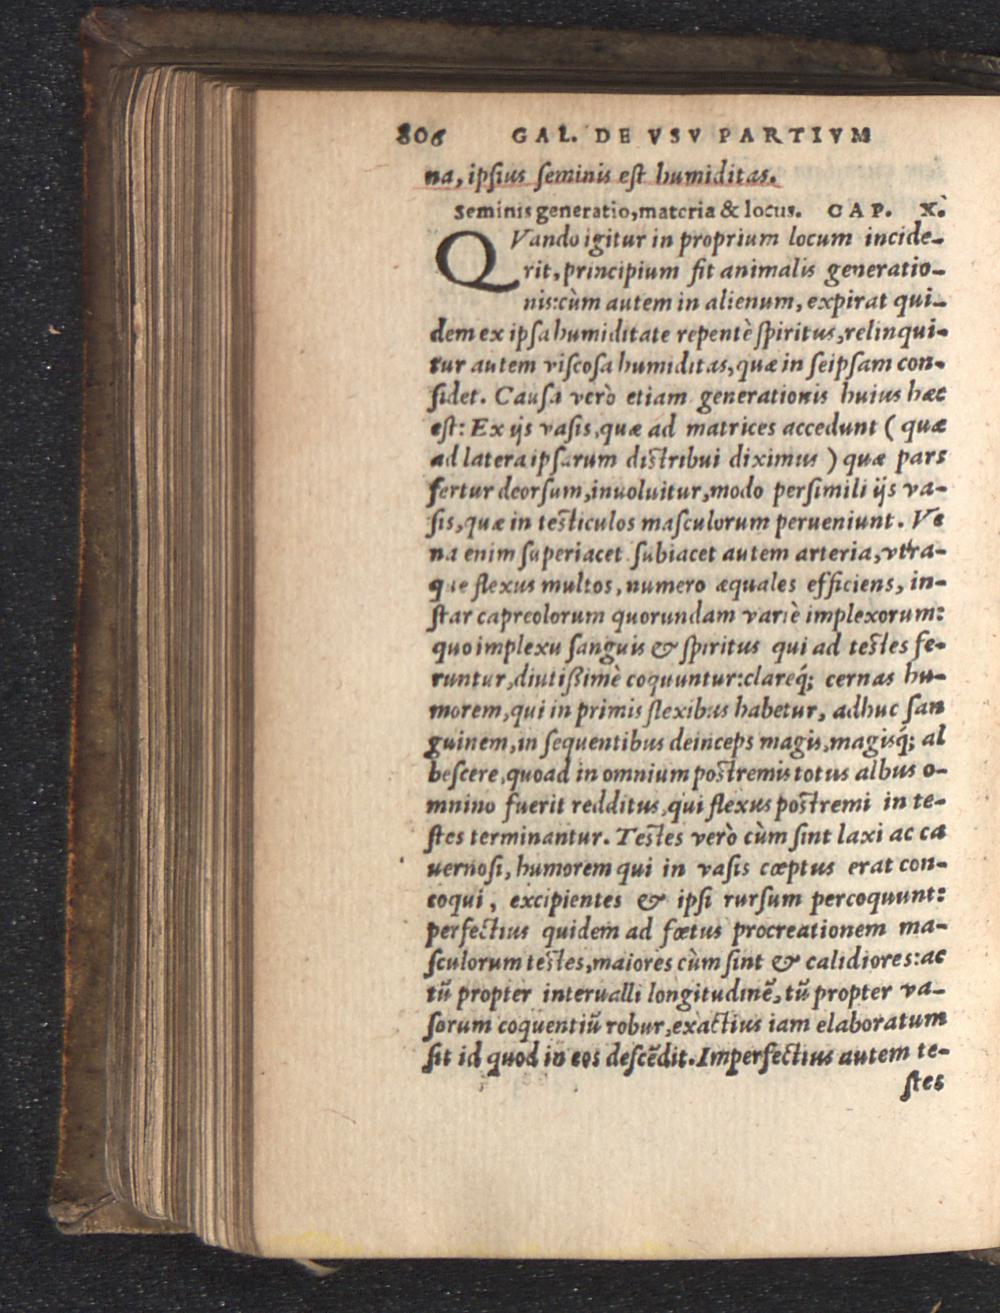 806 GAL. DE VSV PARTIVM
na, ipſius ſeminis eſt humiditas.
Seminis generatio, materia & locus. CAP. X.
QVando igitur in proprium locum incide-
rit, principium fit animalis generatio-
nis: cùm autem in alienum, expirat qui-
dem ex ipſa humiditate repentè ſpiritus, relinqui-
tur autem viſcoſa humiditas, quæ in ſeipſam con-
ſidet. Cauſa verò etiam generationis huius hæc
eſt: Ex ijs vaſis, quæ ad matrices accedunt (quæ
ad latera ipſarum diſtribui diximus) quæ pars
fertur deorſum, inuoluitur, modo perſimili ijs va-
ſis, quæ in teſticulos maſculorum perueniunt. Ve
na enim ſuperiacet ſubiacet autem arteria, vtra-
que flexus multos, numero æquales efficiens, in-
ſtar capreolorum quorundam variè implexorum:
quo implexu ſanguis & ſpiritus qui ad teſtes fe-
runtur, diutißimè coquuntur: clareq́; cernas hu-
morem, qui in primis flexibus habetur, adhuc ſan
guinem, in ſequentibus deinceps magis, magiſq́; al
beſcere, quoad in omnium poſtremis totus albus o-
mnino fuerit redditus, qui flexus poſtremi in te-
ſtes terminantur. Teſtes verò cùm ſint laxi ac ca
uernoſi, humorem qui in vaſis cœptus erat con-
coqui, excipientes & ipſi rurſum percoquunt:
perfectius quidem ad fœtus procreationem ma-
ſculorum teſtes, maiores cùm ſint & calidiores: ac
tũ propter interualli longitudinẽ, tũ propter va-
ſorum coquentiũ robur, exactius iam elaboratum
fit id quod in eos deſcẽdit. Imperfectius autem te-
ſtes